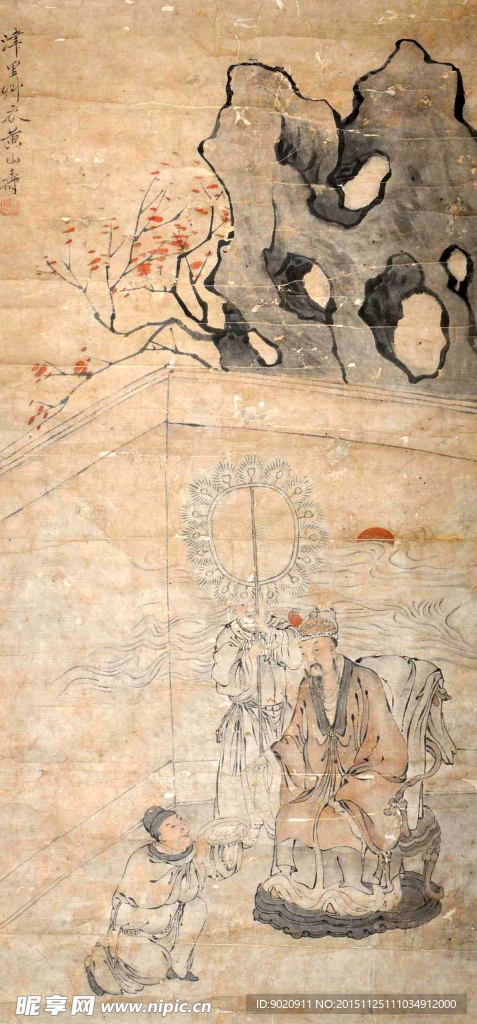 津里艸衣黄山壽
昵享网 www.nipic.cn
ID:9020911 NO:20151125111034912000